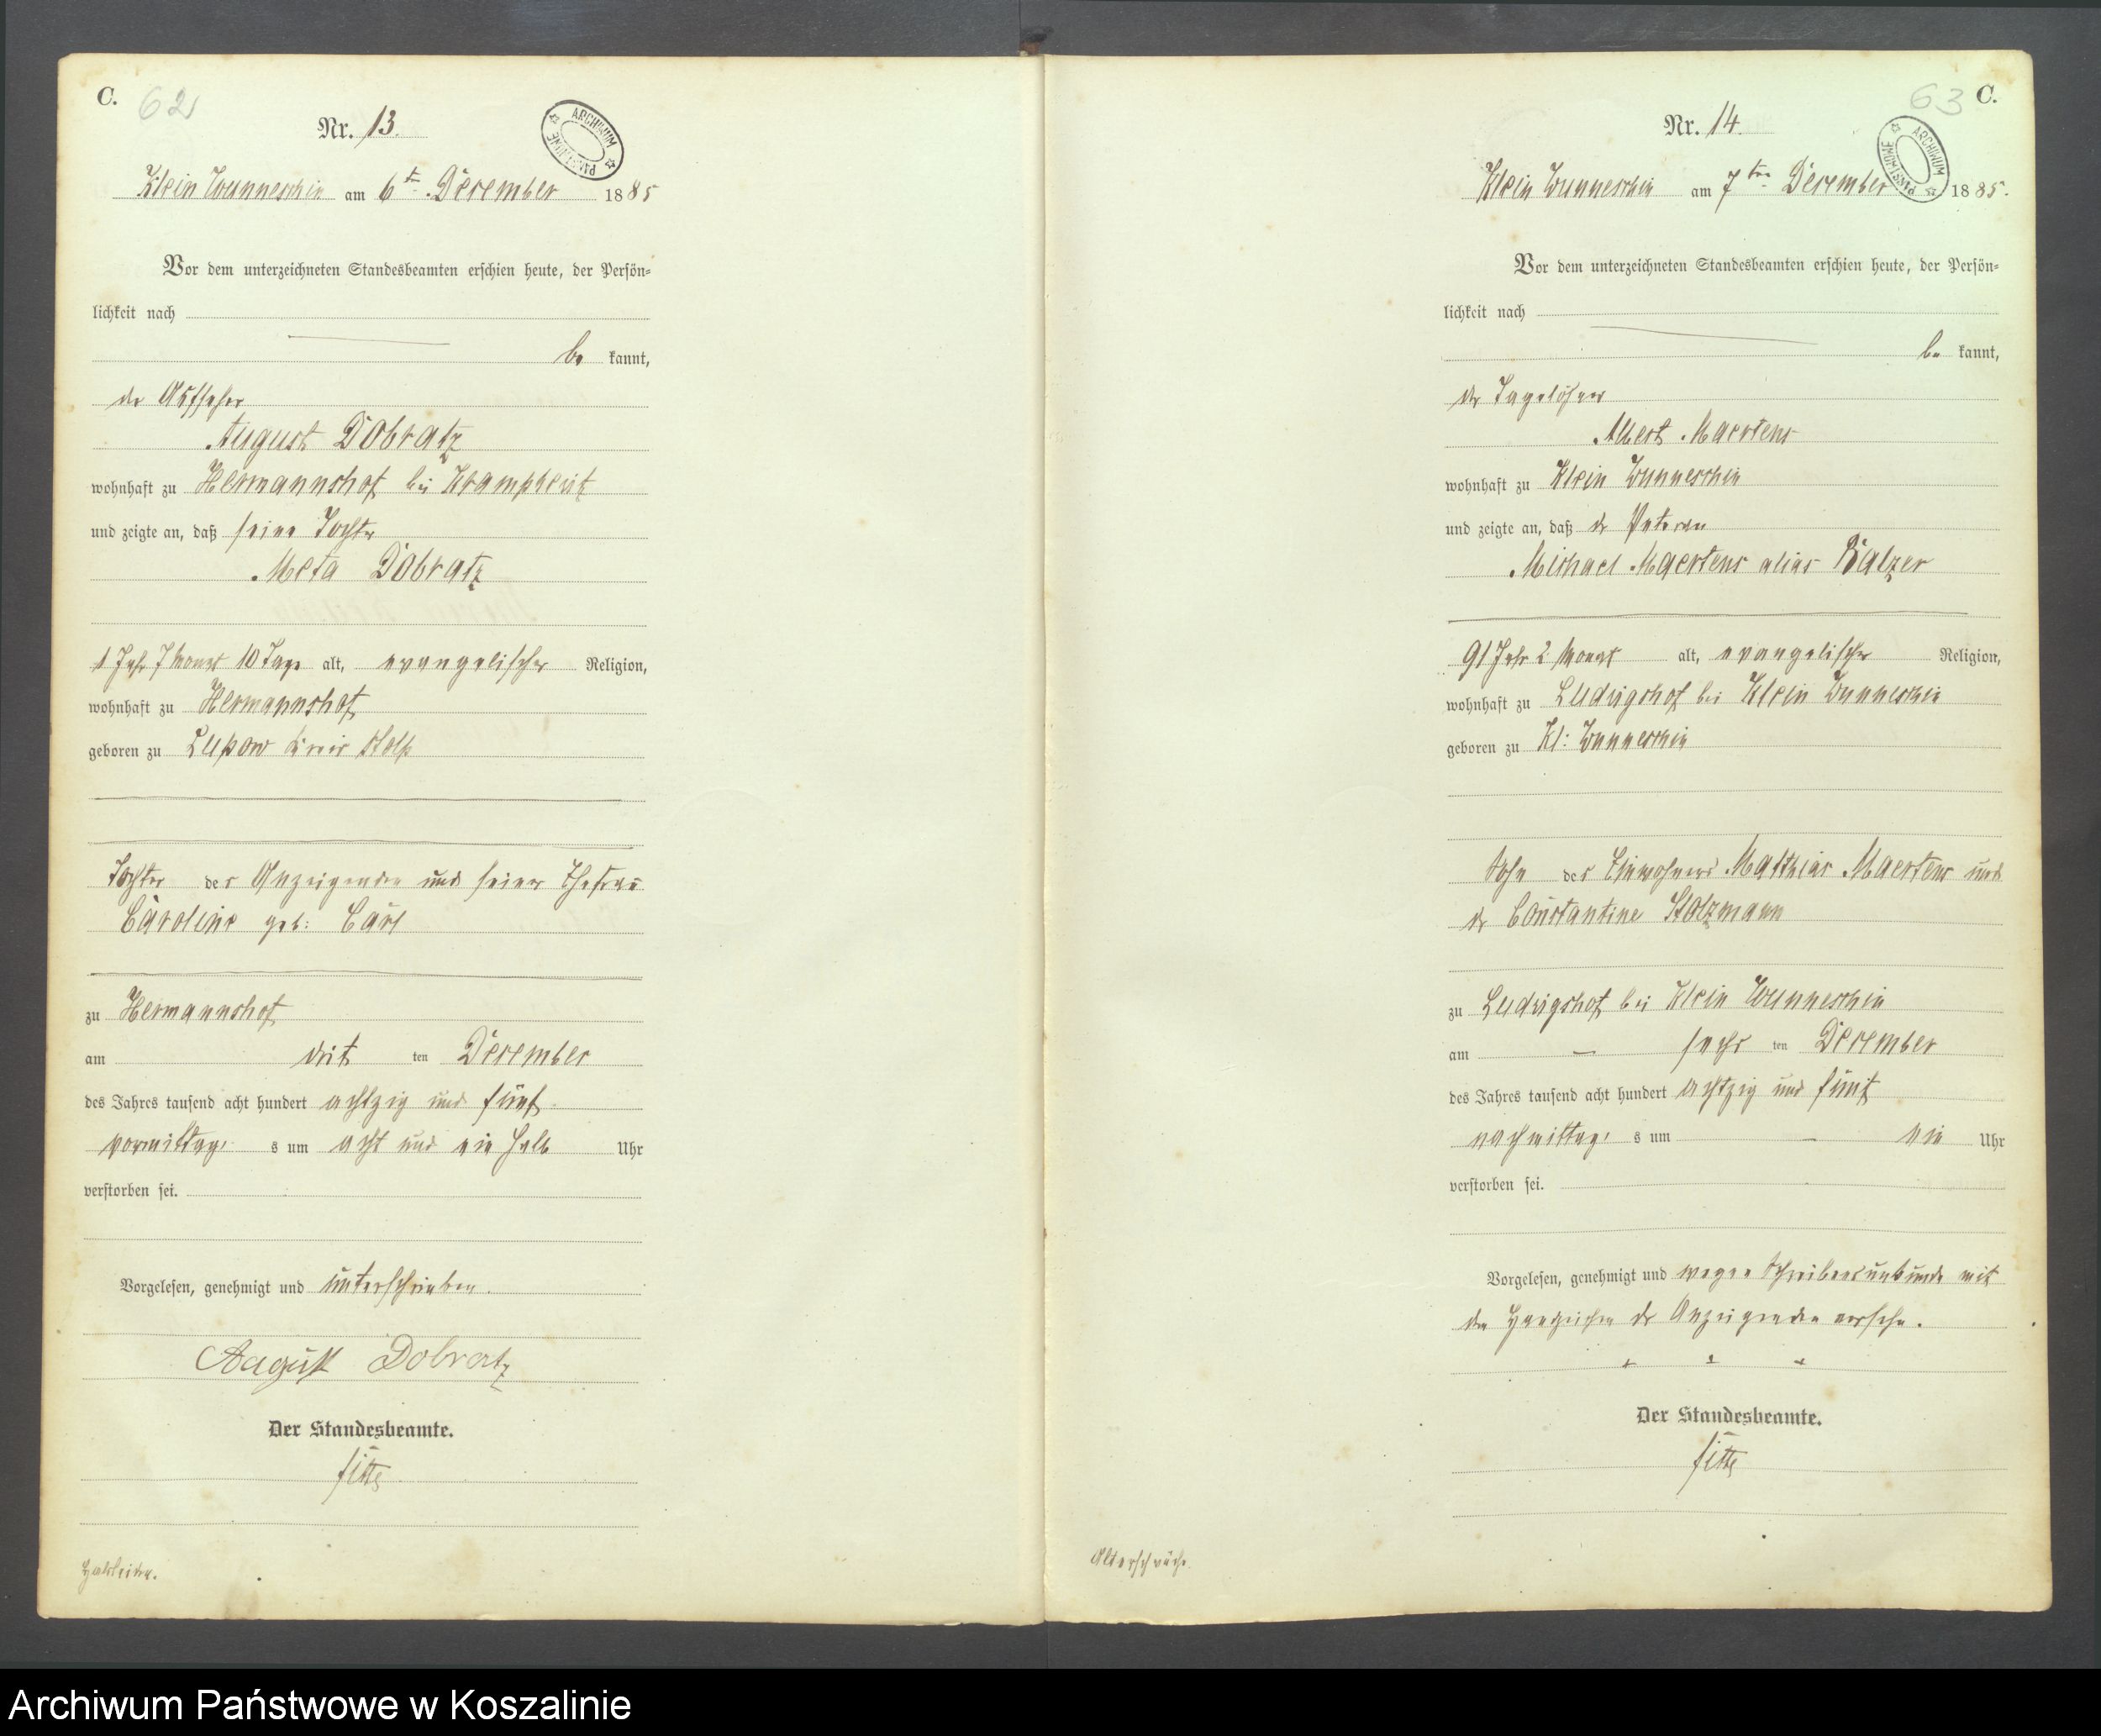 C. 62
Nr. 13.
ARCHIWUM PAŃSTWOWE
Klein Wunneschin am 6t December 1885
Vor dem unterzeichneten Standesbeamten erschien heute, der Persön=
lichkeit nach
be kannt,
der Aufseher
August Dobratz
wohnhaft zu Hermannshof bei
und zeigte an, daß seine Tochter
Meta Dobratz
1 Jahr 7 Monat 10 Tage alt, evangelischer Religion,
wohnhaft zu Hermannshof
geboren zu Lupow Kreis Stolp
Tochter des Anzeigenden und seiner Ehefrau
Caroline geb: Carl
zu Hermannshof
am drit ten December
des Jahres tausend acht hundert achtzig und fünf
vormittags s um acht und ein halb Uhr
verstorben sei.
Vorgelesen, genehmigt und unterschrieben.
August Dobratz
Der Standesbeamte.
Halsleiden.
63 C.
Nr. 14.
ARCHIWUM PAŃSTWOWE
Klein Wunneschin am 7ten December 1885.
Vor dem unterzeichneten Standesbeamten erschien heute, der Persön=
lichkeit nach
be kannt,
der Tagelöhner
Albert Maertens
wohnhaft zu Klein Wunneschin
und zeigte an, daß der Veteran
Michael Maertens alias Balzer
91 Jahr 2 Monat alt, evangelischer Religion,
wohnhaft zu Ludwigshof bei Klein Wunneschin
geboren zu Kl: Wunneschin
Sohn des Einwohners Matthias Maertens und
der Constantine Stolzmann
zu Ludwigshof bei Klein Wunneschin
am – sechs ten December
des Jahres tausend acht hundert achtzig und fünf
nachmittags s um – ein Uhr
verstorben sei.
Vorgelesen, genehmigt und wegen Schreibensunkunde mit
den Handzeichen des Anzeigenden versehen.
+ + +
Der Standesbeamte.
Altersschwäche.
Archiwum Państwowe w Koszalinie